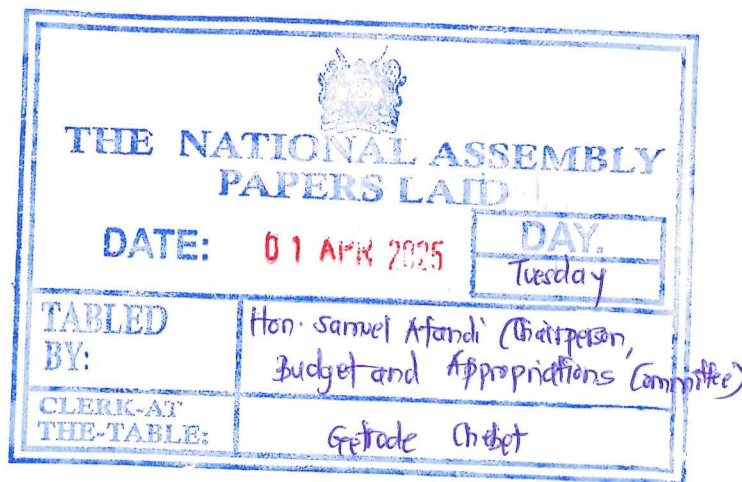 THE NATIONAL ASSEMBLY
PAPERS LAID
DATE: 01 APR 2025
DAY.
Tuesday
TABLED BY:
Hon. Samuel Atandi (Chairperson,
Budget and Appropriations Committee)
CLERK-AT THE-TABLE:
Getrode Chebet